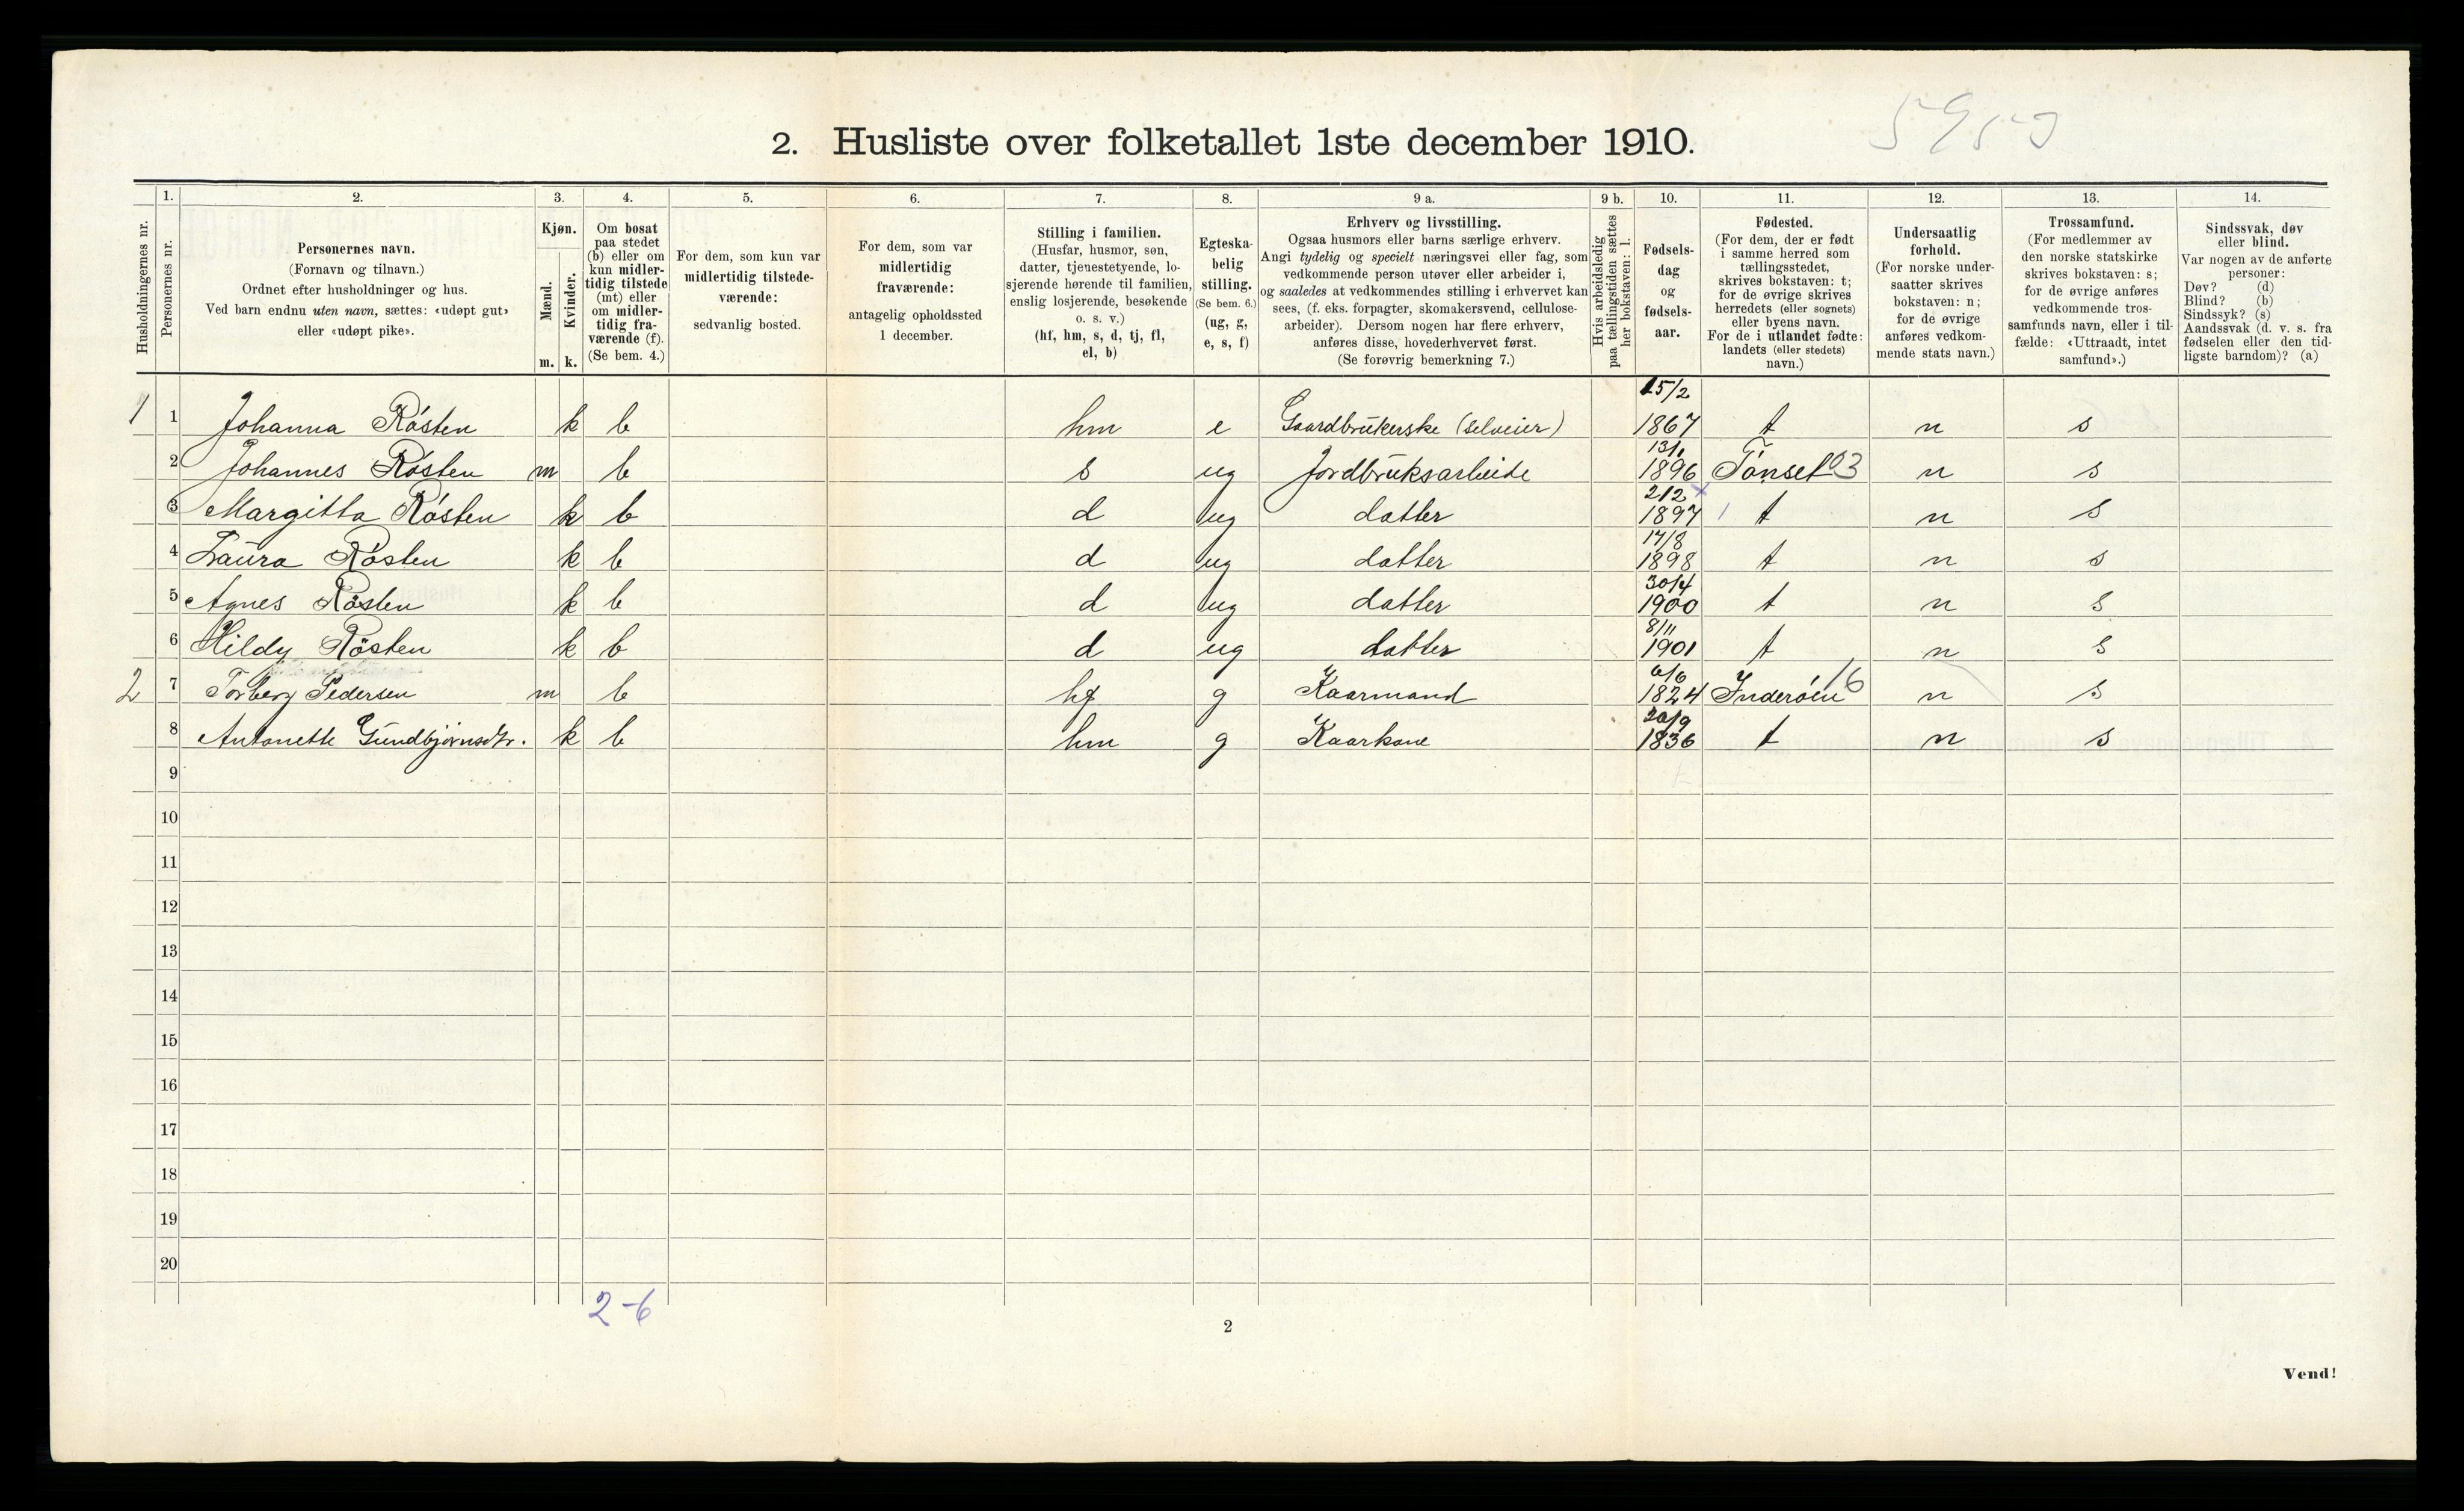 2. Husliste over folketallet 1ste december 1910.
Husholdningernes nr.
1.
Personernes nr.
2.
Personernes navn.
(Fornavn og tilnavn.)
Ordnet efter husholdninger og hus.
Ved barn endnu uten navn, sættes: «udøpt gut»
eller «udøpt pike».
3.
Kjøn.
Mænd.
Kvinder.
m. k.
4.
Om bosat
paa stedet
(b) eller om
kun midler-
tidig tilstede
(mt) eller
om midler-
tidig fra-
værende (f).
(Se bem. 4.)
5.
For dem, som kun var
midlertidig tilstede-
værende:
sedvanlig bosted.
6.
For dem, som var
midlertidig
fraværende:
antagelig opholdssted
1 december.
7.
Stilling i familien.
(Husfar, husmor, søn,
datter, tjenestetyende, lo-
sjerende hørende til familien,
enslig losjerende, besøkende
o. s. v.)
(hf, hm, s, d, tj, fl,
el, b)
8.
Egteska-
belig
stilling.
(Se bem. 6.)
(ug, g,
e, s, f)
9 a.
Erhverv og livsstilling.
Ogsaa husmors eller barns særlige erhverv.
Angi tydelig og specielt næringsvei eller fag, som
vedkommende person utøver eller arbeider i,
og saaledes at vedkommendes stilling i erhvervet kan
sees, (f. eks. forpagter, skomakersvend, cellulose-
arbeider). Dersom nogen har flere erhverv,
anføres disse, hovederhvervet først.
(Se forøvrig bemerkning 7.)
9 b.
Hvis arbeidsledig
paa tællingstiden sættes
her bokstaven: l.
10.
Fødsels-
dag
og
fødsels-
aar.
11.
Fødested.
(For dem, der er født
i samme herred som
tællingsstedet,
skrives bokstaven: t;
for de øvrige skrives
herredets (eller sognets)
eller byens navn.
For de i utlandet fødte:
landets (eller stedets)
navn.)
12.
Undersaatlig
forhold.
(For norske under-
saatter skrives
bokstaven: n;
for de øvrige
anføres vedkom-
mende stats navn.)
13.
Trossamfund.
(For medlemmer av
den norske statskirke
skrives bokstaven: s;
for de øvrige anføres
vedkommende tros-
samfunds navn, eller i til-
fælde: «Uttraadt, intet
samfund».)
14.
Sindssvak, døv
eller blind.
Var nogen av de anførte
personer:
Døv? (d)
Blind? (b)
Sindssyk? (s)
Aandssvak (d. v. s. fra
fødselen eller den tid-
ligste barndom)? (a)
15/2
1 1 Johanna Røsten k b hm e Gaardbrukerske (selveier) 1867 t n s
2 Johannes Røsten m b s ug Jordbruksarbeide 1896 Tønset 03 n s
2/2
3 Margitta Røsten k b d ug datter 1897 t n s
17/8
4 Laura Røsten k b d ug datter 1898 t n s
30/4
5 Agnes Røsten k b d ug datter 1900 t n s
8/11
6 Hildy Røsten k b d ug datter 1901 t n s
6/6
2 7 Torberg Pedersen m b hf g Kaarmand 1824 Inderøen 16 n s
20/9
8 Antonette Gundbjørnsdtr. k b hm g Kaarkone 1836 t n s
9
10
11
12
13
14
15
16
17
18
19
20
2-6
2
Vend!